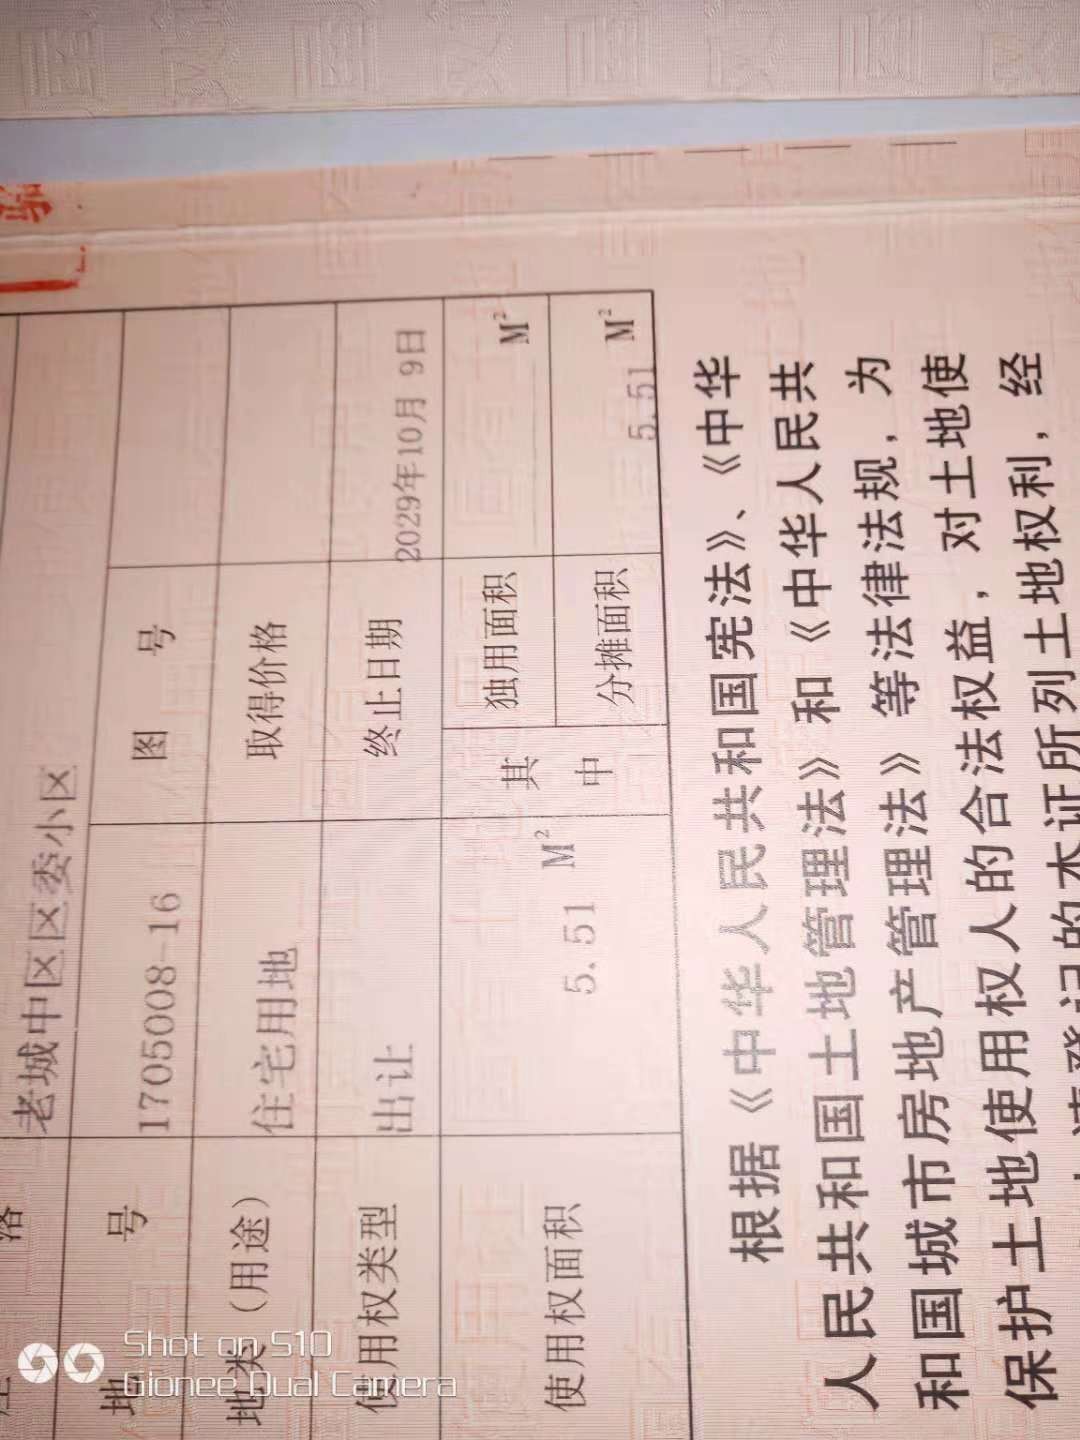 坐 落 老城中区区委小区
地 号 1705008-16 图 号
地类（用途） 住宅用地 取得价格
使用权类型 出让 终止日期 2029年10月 9日
使用权面积 5.51 M² 其中 独用面积 M²
分摊面积 5.51 M²
根据《中华人民共和国宪法》、《中华
人民共和国土地管理法》和《中华人民共
和国城市房地产管理法》等法律法规，为
保护土地使用权人的合法权益，对土地使
请登记的本证所列土地权利，经
Shot on S10
Gionee Dual Camera